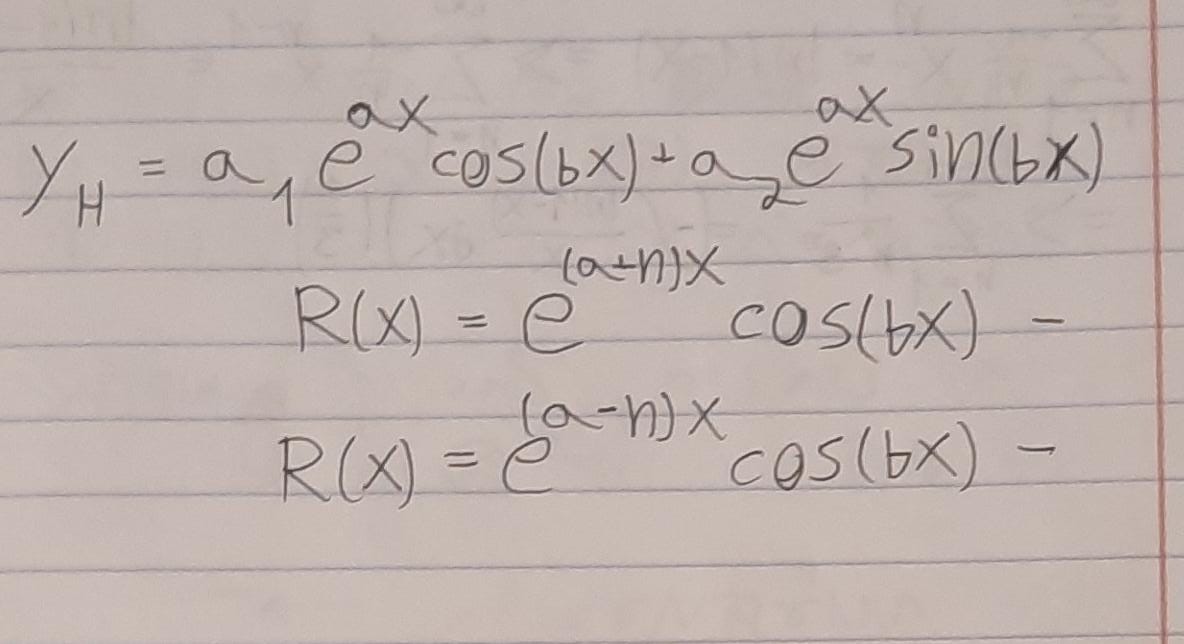 y_H = a_1 e^{ax} cos(bx) + a_2 e^{ax} sin(bx)
R(x) = e^{(a+n)x} cos(bx) -
R(x) = e^{(a-n)x} cos(bx) -